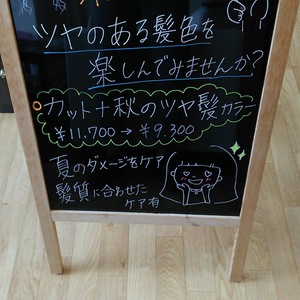 ツヤのある髪色を
楽しんでみませんか?
カット+秋のツヤ髪カラー
¥11.700→¥9.300
夏のダメージをケア
髪質に合わせた
ケア有